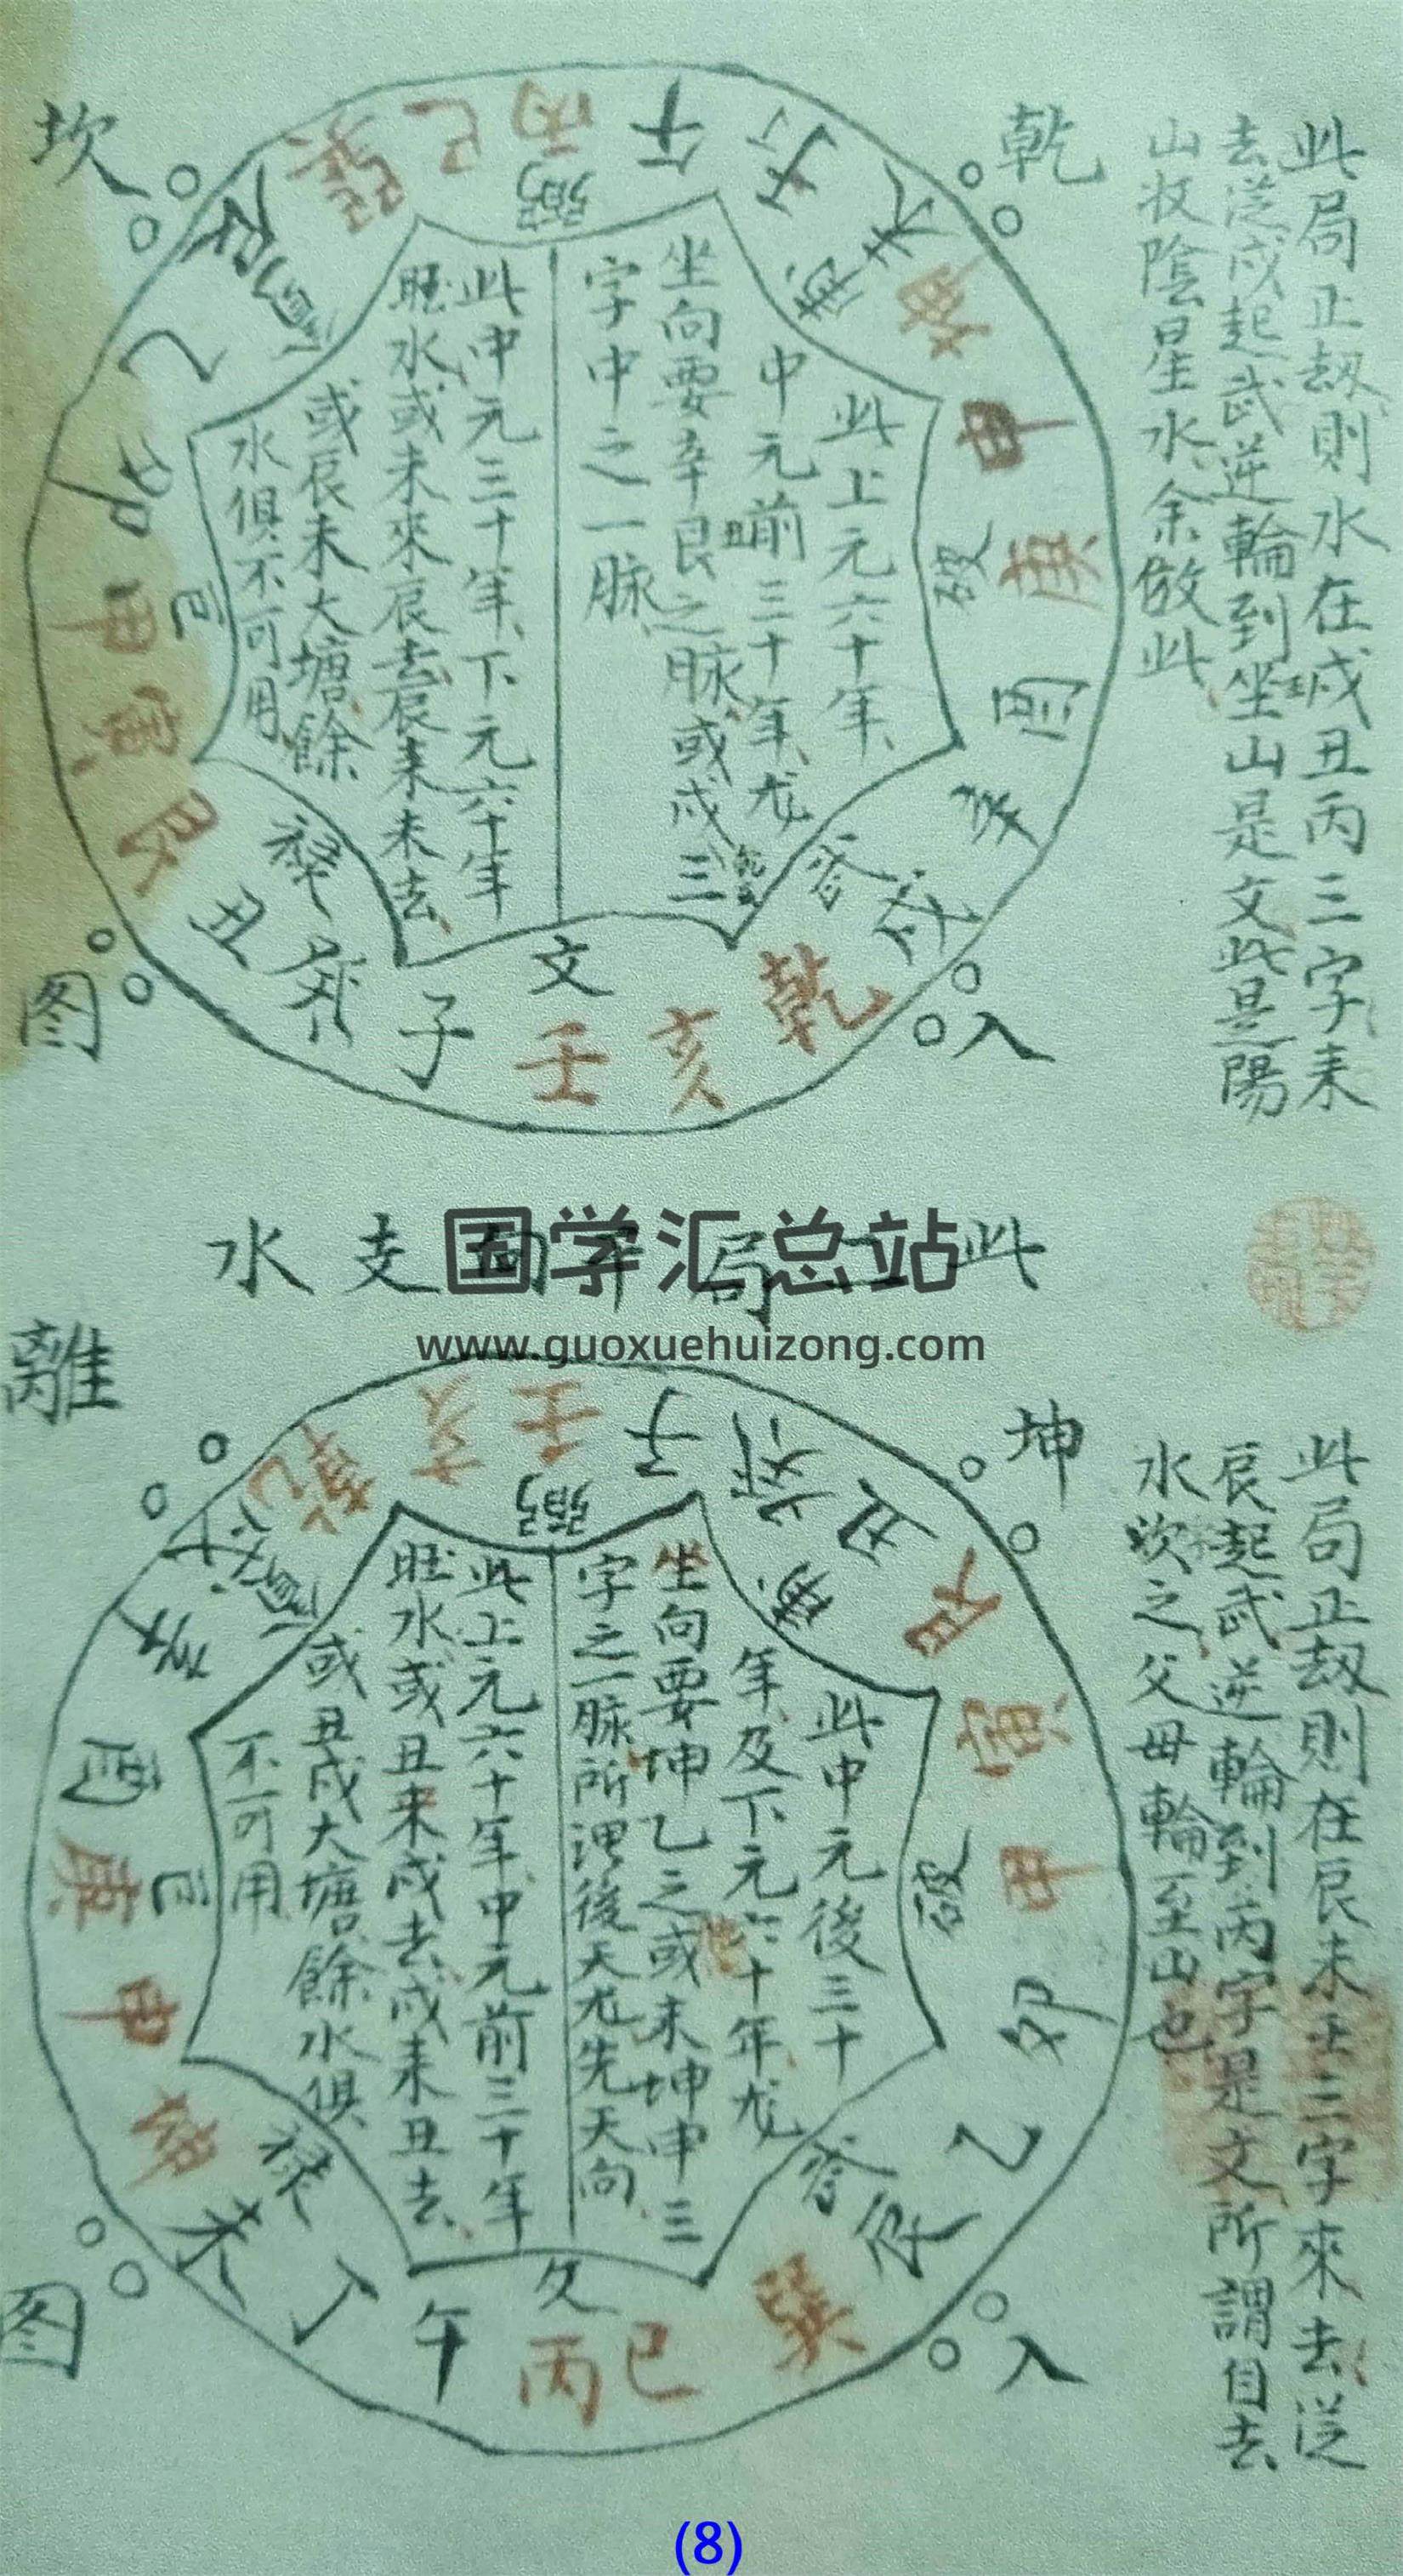 此局正刼則水在戍丑丙三字来
去從戍起武逆輪到坐山是文此是陽
山收陰星水余倣此
乾入坎图
此上元六十年
中元前三十年龙
坐向要辛艮丑之脉或戍
三
字中之一脉
此中元三十年下元六十年
旺水或未來辰去辰来未去
或辰未大塘餘
水俱不可用
弼
丁午丙巳巽
辰
乙
卯
甲
寅
艮
丑
癸
子
文
壬
亥
乾
戍
武
辛
酉
庚
破
申
坤
未
禄
巨
此二局干向支水
国学汇总站
www.guoxuehuizong.com
此局正刼則在辰未壬三字來去從
辰起武逆輪到丙字是文所謂自去
水坎之父母輪至山也
坤入離图
此中元後三十
年及下元六十年龙
坐向要坤乙之或未坤申三
字之一脉所謂後天龙先天向
此上元六十年中元前三十年
旺水或丑来戍去戍来丑去
或丑戍大塘餘水俱
不可用
弼
癸子壬亥乾
戍
辛
酉
庚
申
坤
未
丁
午
文
丙
巳
巽
辰
乙
卯
甲
破
寅
艮
丑
禄
巨
(8)